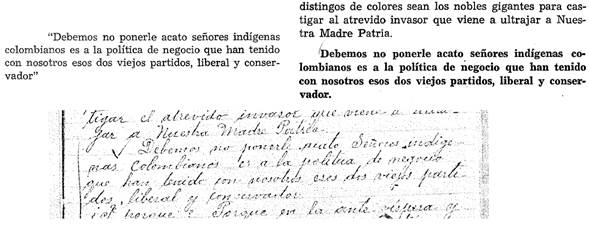 "Debemos no ponerle acato señores indígenas
colombianos es a la política de negocio que han tenido
con nosotros esos dos viejos partidos, liberal y conser-
vador"
distingos de colores sean los nobles gigantes para cas-
tigar al atrevido invasor que viene a ultrajar a Nues-
tra Madre Patria.
Debemos no ponerle acato señores indígenas co-
lombianos es a la política de negocio que han tenido
con nosotros esos dos viejos partidos, liberal y conser-
vador.
tigar el atrevido invasor que viene a
jar a Nuestra Madre Patria.
Debemos no ponerle acato Señores indige-
nas Colombianos es a la politica de negocio
que han tenido con nosotros esos dos viejos parti-
dos, liberal y conservador
porque Porque en la ante vispera y